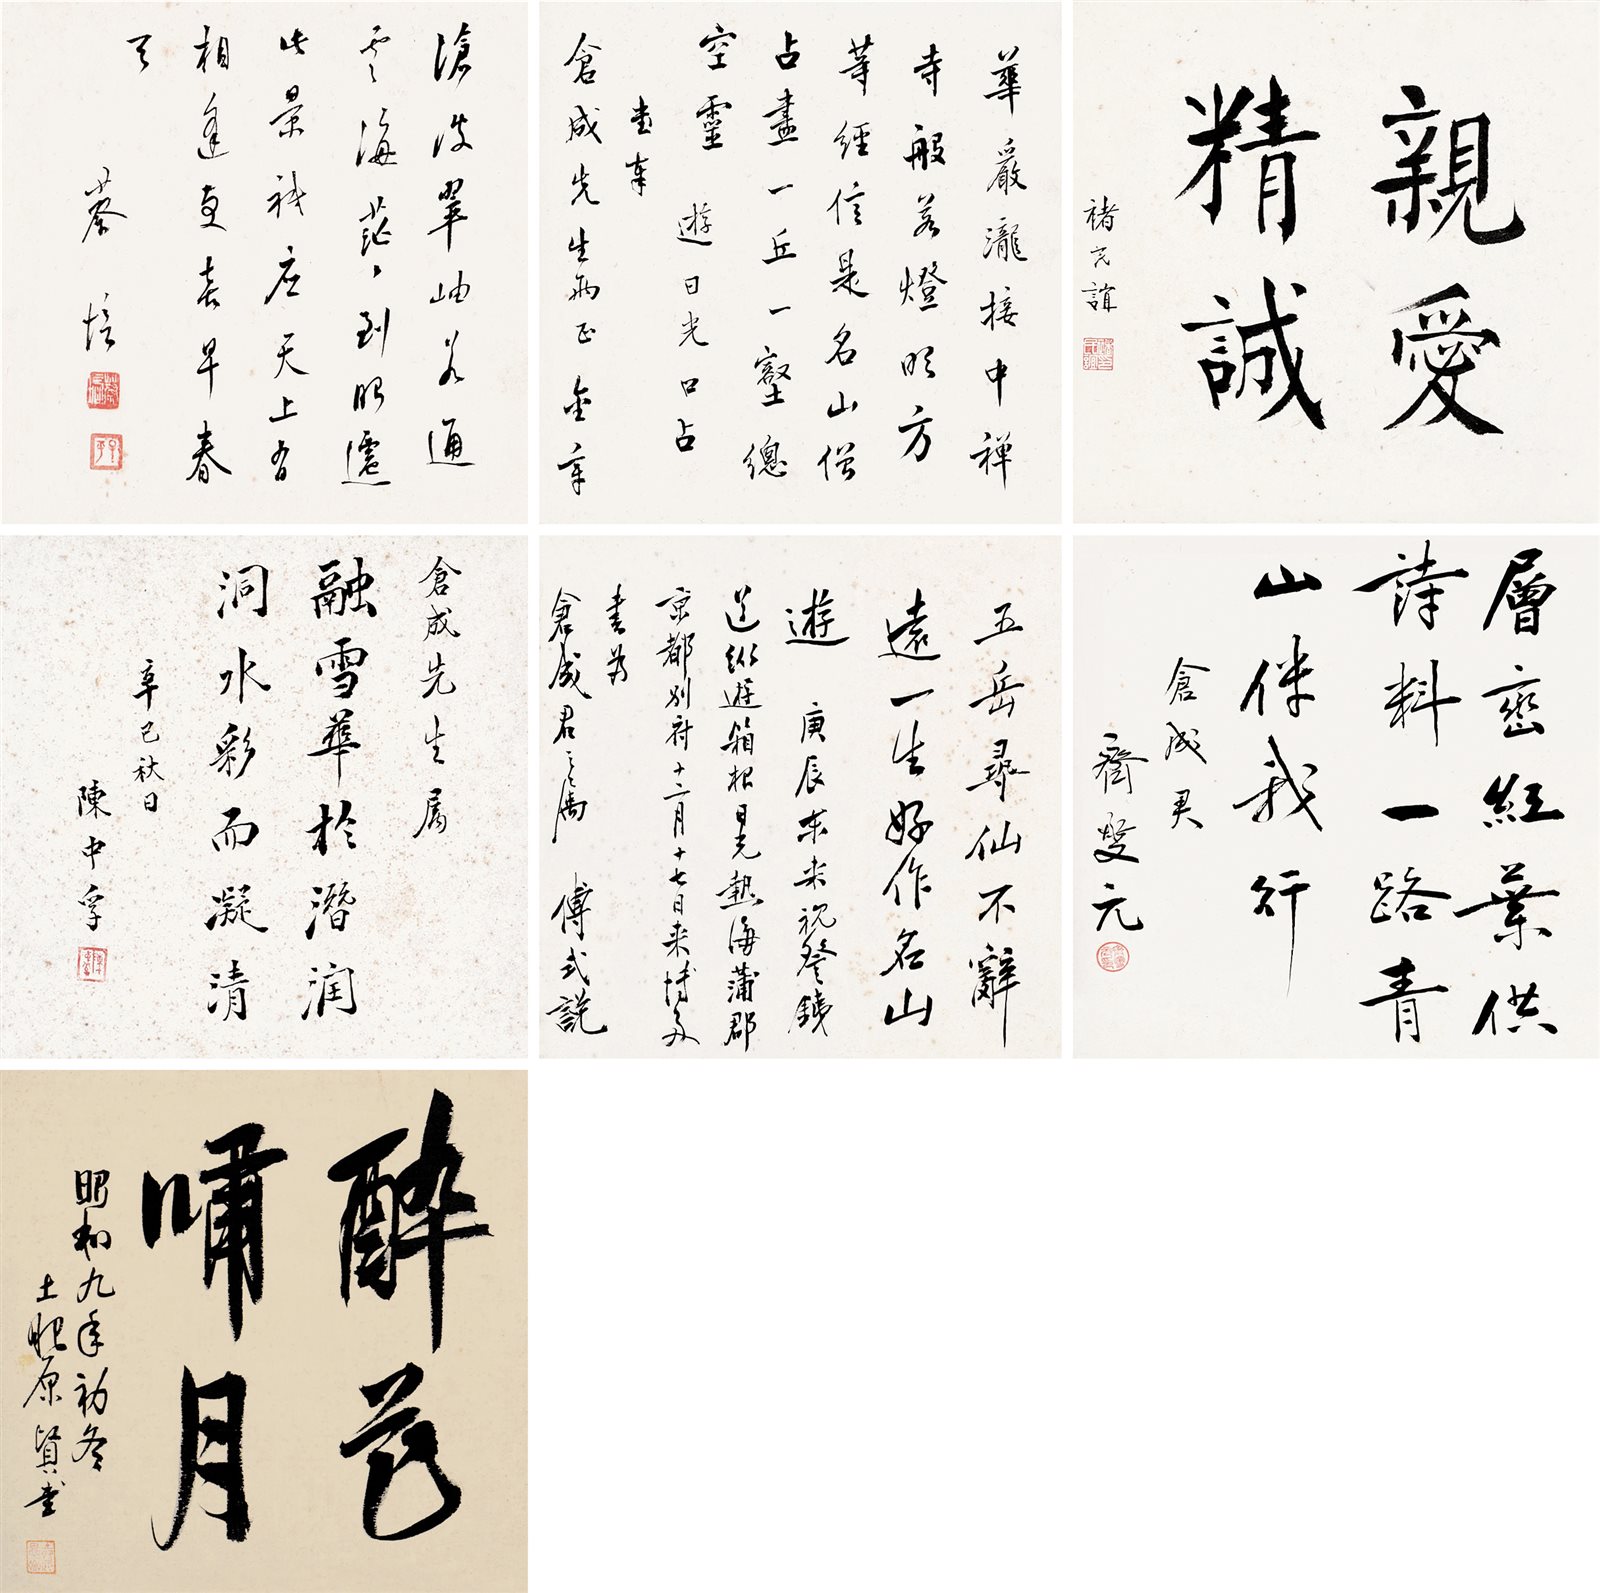 親愛
精誠
褚民誼
華嚴瀧接中禅
寺般若燈明方
等經信是名山僧
占盡一丘一壑總
空靈 遊日光口占
書奉
倉成先生兩正
滄波翠岫若通
雲海茫茫到眼邊
此景祇應天上有
相逢更喜早春
天
蔡培
層巒紅葉供
詩料一路青
山伴我行
倉成君
齊燮元
五岳尋仙不辭
遠一生好作名山
遊 庚辰東來視察鐵
道縱遊箱根日光熱海蒲郡
京都別府十二月十七日來博多
書為
倉成君之屬 傅式說
倉成先生屬
融雪華於潛润
洞水彩而凝清
辛巳秋日
陳中孚
醉花
嘯月
昭和九年初冬
土肥原賢書